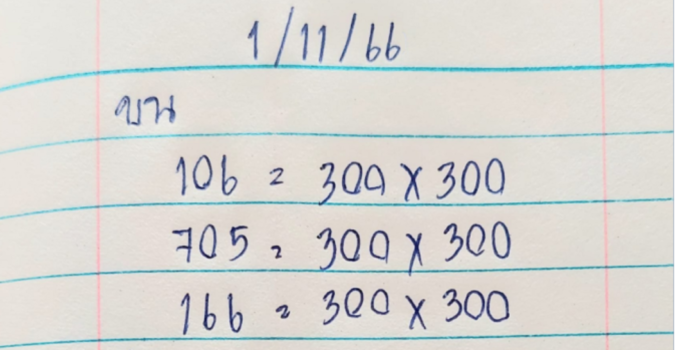 1/11/66
บน
106 = 300 x 300
705 = 300 x 300
166 = 300 x 300